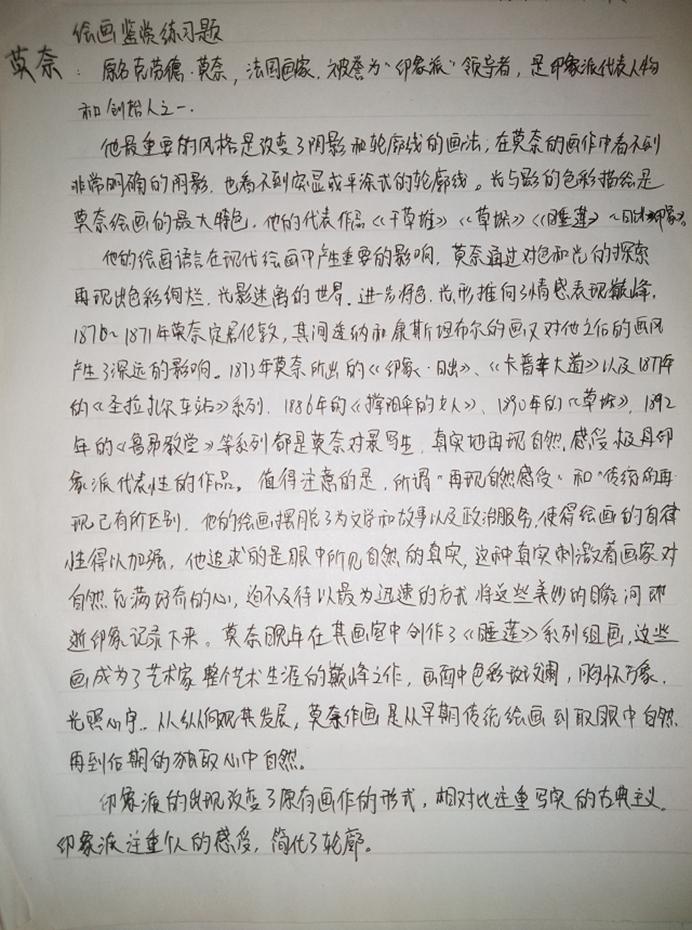 绘画鉴赏练习题
莫奈：原名克劳德·莫奈，法国画家，被誉为“印象派”领导者，是印象派代表人物
和创始人之一.
他最重要的风格是改变了阴影和轮廓线的画法；在莫奈的画作中看不到
非常明确的阴影，也看不到突显或平涂式的轮廓线。光与影的色彩描绘是
莫奈绘画的最大特色，他的代表作品《干草堆》《草垛》《睡莲》《日出·印象》。
他的绘画语言在现代绘画中产生重要的影响，莫奈通过对色和光的探索
再现出色彩绚烂、光影迷离的世界，进一步将色、光、形推向了情感表现巅峰，
1870～1871年莫奈定居伦敦，其间透纳和康斯坦布尔的画又对他之后的画风
产生了深远的影响。1873年莫奈所出的《印象·日出》、《卡普辛大道》以及1877年
的《圣拉扎尔车站》系列、1886年的《撑阳伞的女人》、1890年的《草垛》，1892
年的《鲁昂教堂》等系列都是莫奈对景写生，真实地再现自然，感受极具印
象派代表性的作品。值得注意的是，所谓“再现自然感受”和“传统的再
现已有所区别，他的绘画摆脱了为文学和故事以及政治服务，使得绘画的自律
性得以加强，他追求的是眼中所见自然的真实，这种真实刺激着画家对
自然充满好奇的心，迫不及待以最为迅速的方式将这些美妙的瞬间即
逝印象记录下来。莫奈晚年在其画室中创作了《睡莲》系列组画，这些
画成为了艺术家整个艺术生涯的巅峰之作，画面中色彩斑斓，胸怀万象，
光照心宇。从纵向观其发展，莫奈作画是从早期传统绘画到取眼中自然
再到后期的独取心中自然。
印象派的出现改变了原有画作的形式，相对比注重写实的古典主义，
印象派注重个人的感受，简化了轮廓。